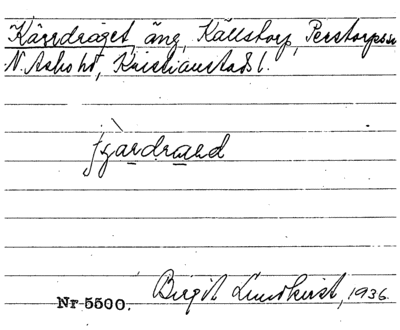 Kärrdraget, äng, Källstorp, Perstorps sn
N. Åsbo hd, Kristianstads l.
Birgit Lundkvist, 1936.
Nr 5500.